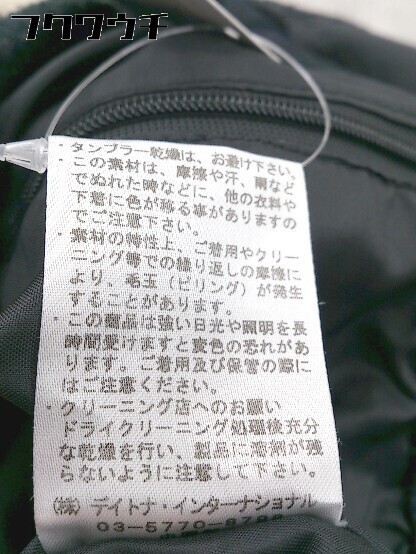 フクウチ
・タンブラー乾燥は、お避け下さい。
・この素材は、摩擦や汗、雨など
でぬれた時などに、他の衣料や
下着に色が移る事がありますの
でご注意下さい。
・素材の特性上、ご着用やクリー
ニング等での繰り返しの摩擦に
より、毛玉（ピリング）が発生
することがあります。
・この商品は強い日光や照明を長
時間受けますと変色の恐れがあ
ります。ご着用及び保管の際に
はご注意ください。
・クリーニング店へのお願い
ドライクリーニング処理後充分
な乾燥を行い、製品に溶剤が残
らないように注意して下さい。
（株）デイトナ・インターナショナル
03-5770-